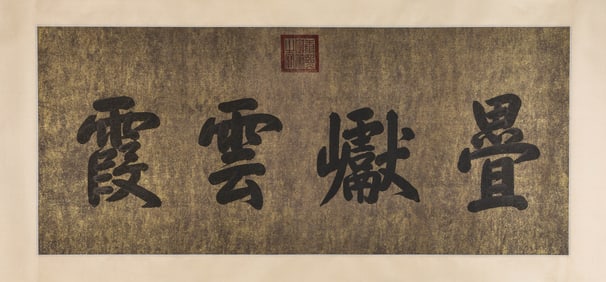 疊巘雲霞